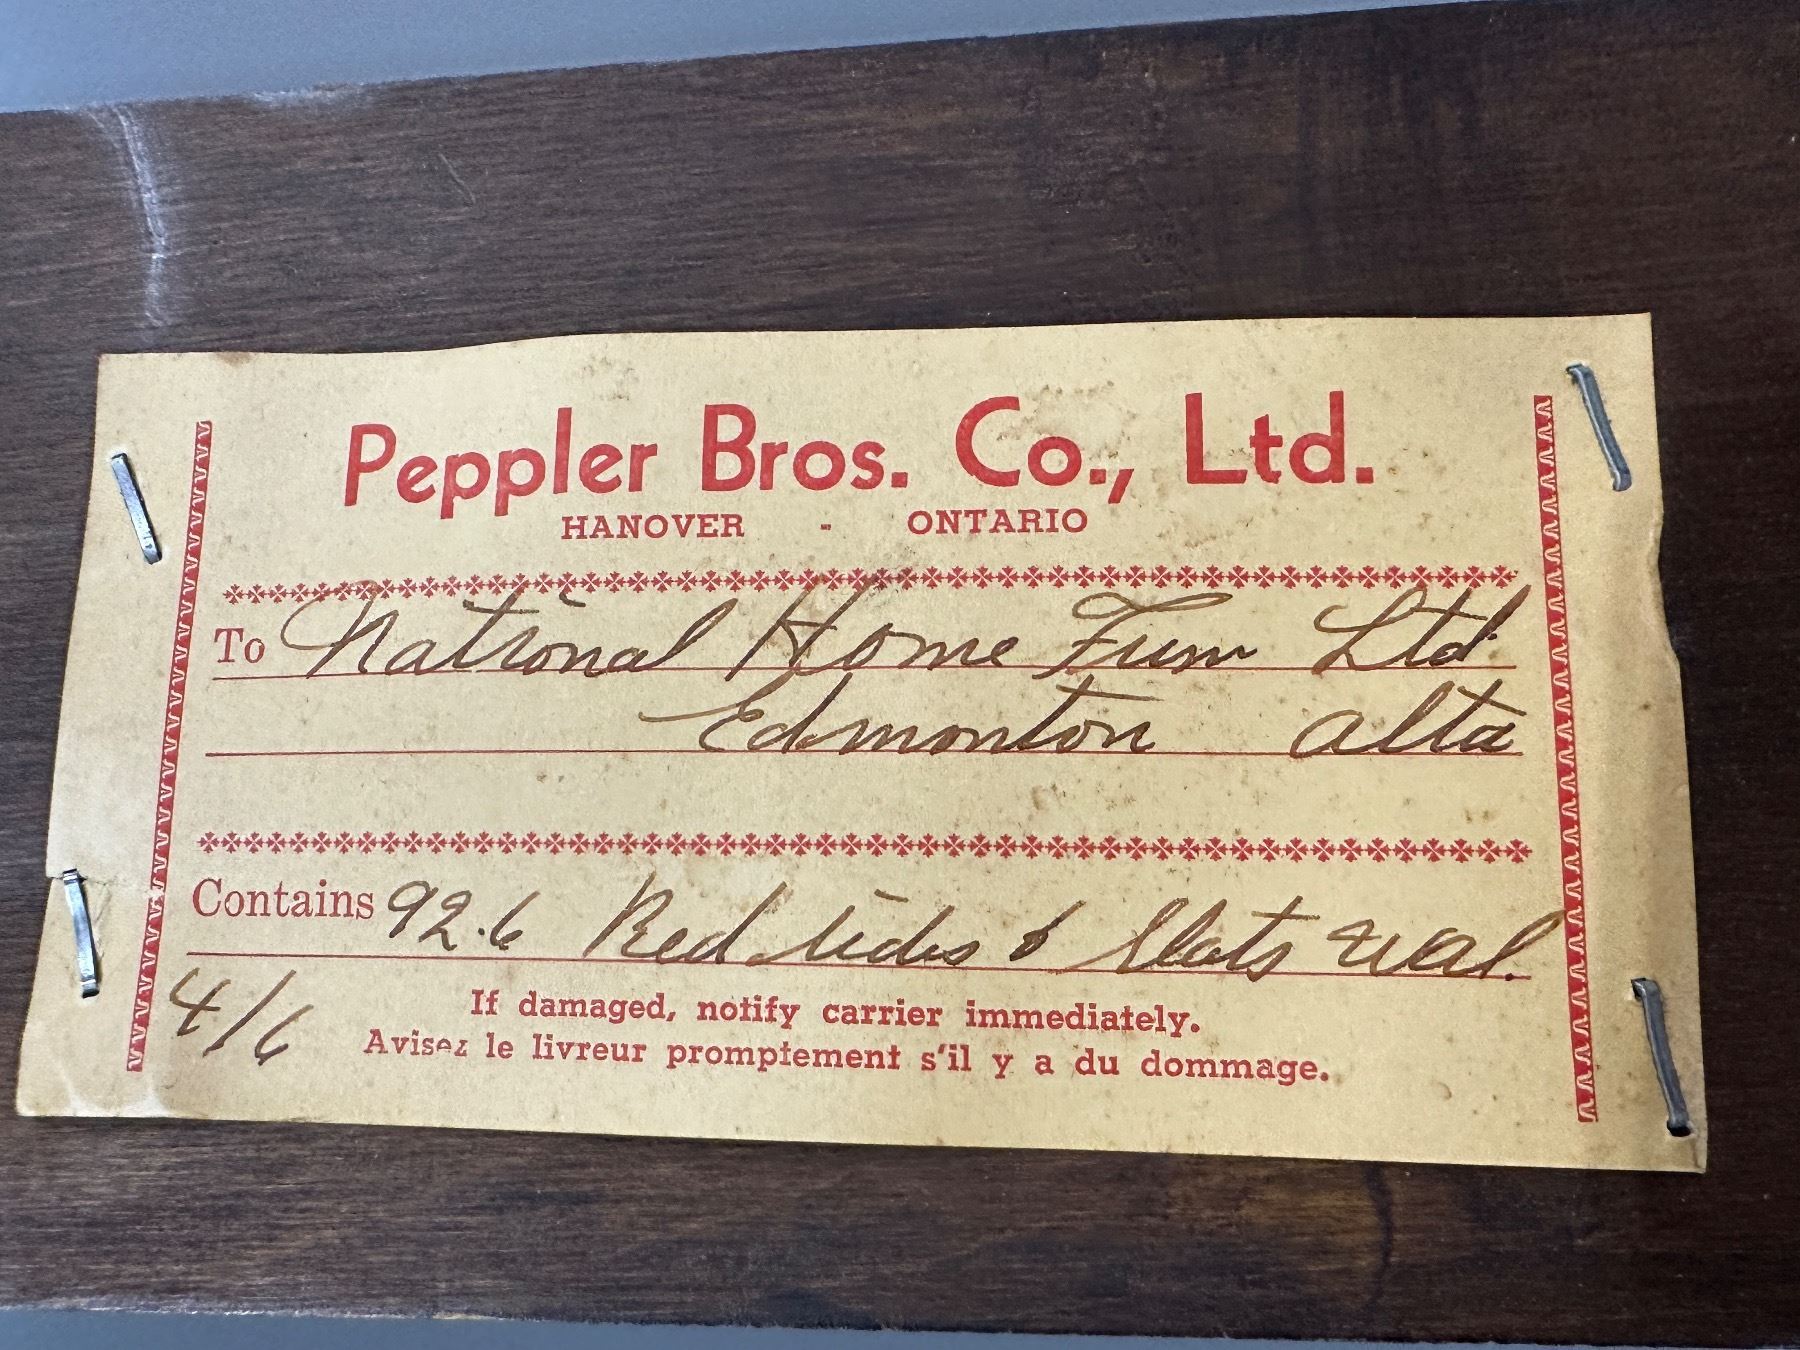 Peppler Bros. Co., Ltd.
HANOVER - ONTARIO
To National Home Furn Ltd.
Edmonton Alta
Contains 92.6 Bed sides & Slats Wal.
4/6
If damaged, notify carrier immediately.
Avisez le livreur promptement s'il y a du dommage.